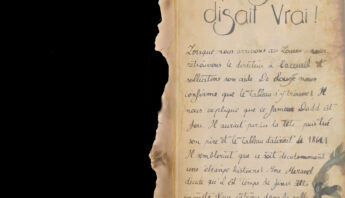 disait Vrai !
Lorsque nous arrivons au Louvre nous
retrouvons le directeur à l'accueil et
sollicitons son aide. Ce dernier nous
confirme que le tableau s'y trouve ! Il
nous explique que ce fameux Dadd est
fou. Il aurait perdu la tête puis tué
son père et le tableau daterait de 1864 !
Il semblerait que ce soit décidemment
une étrange histoire !
décide qu'il est temps de